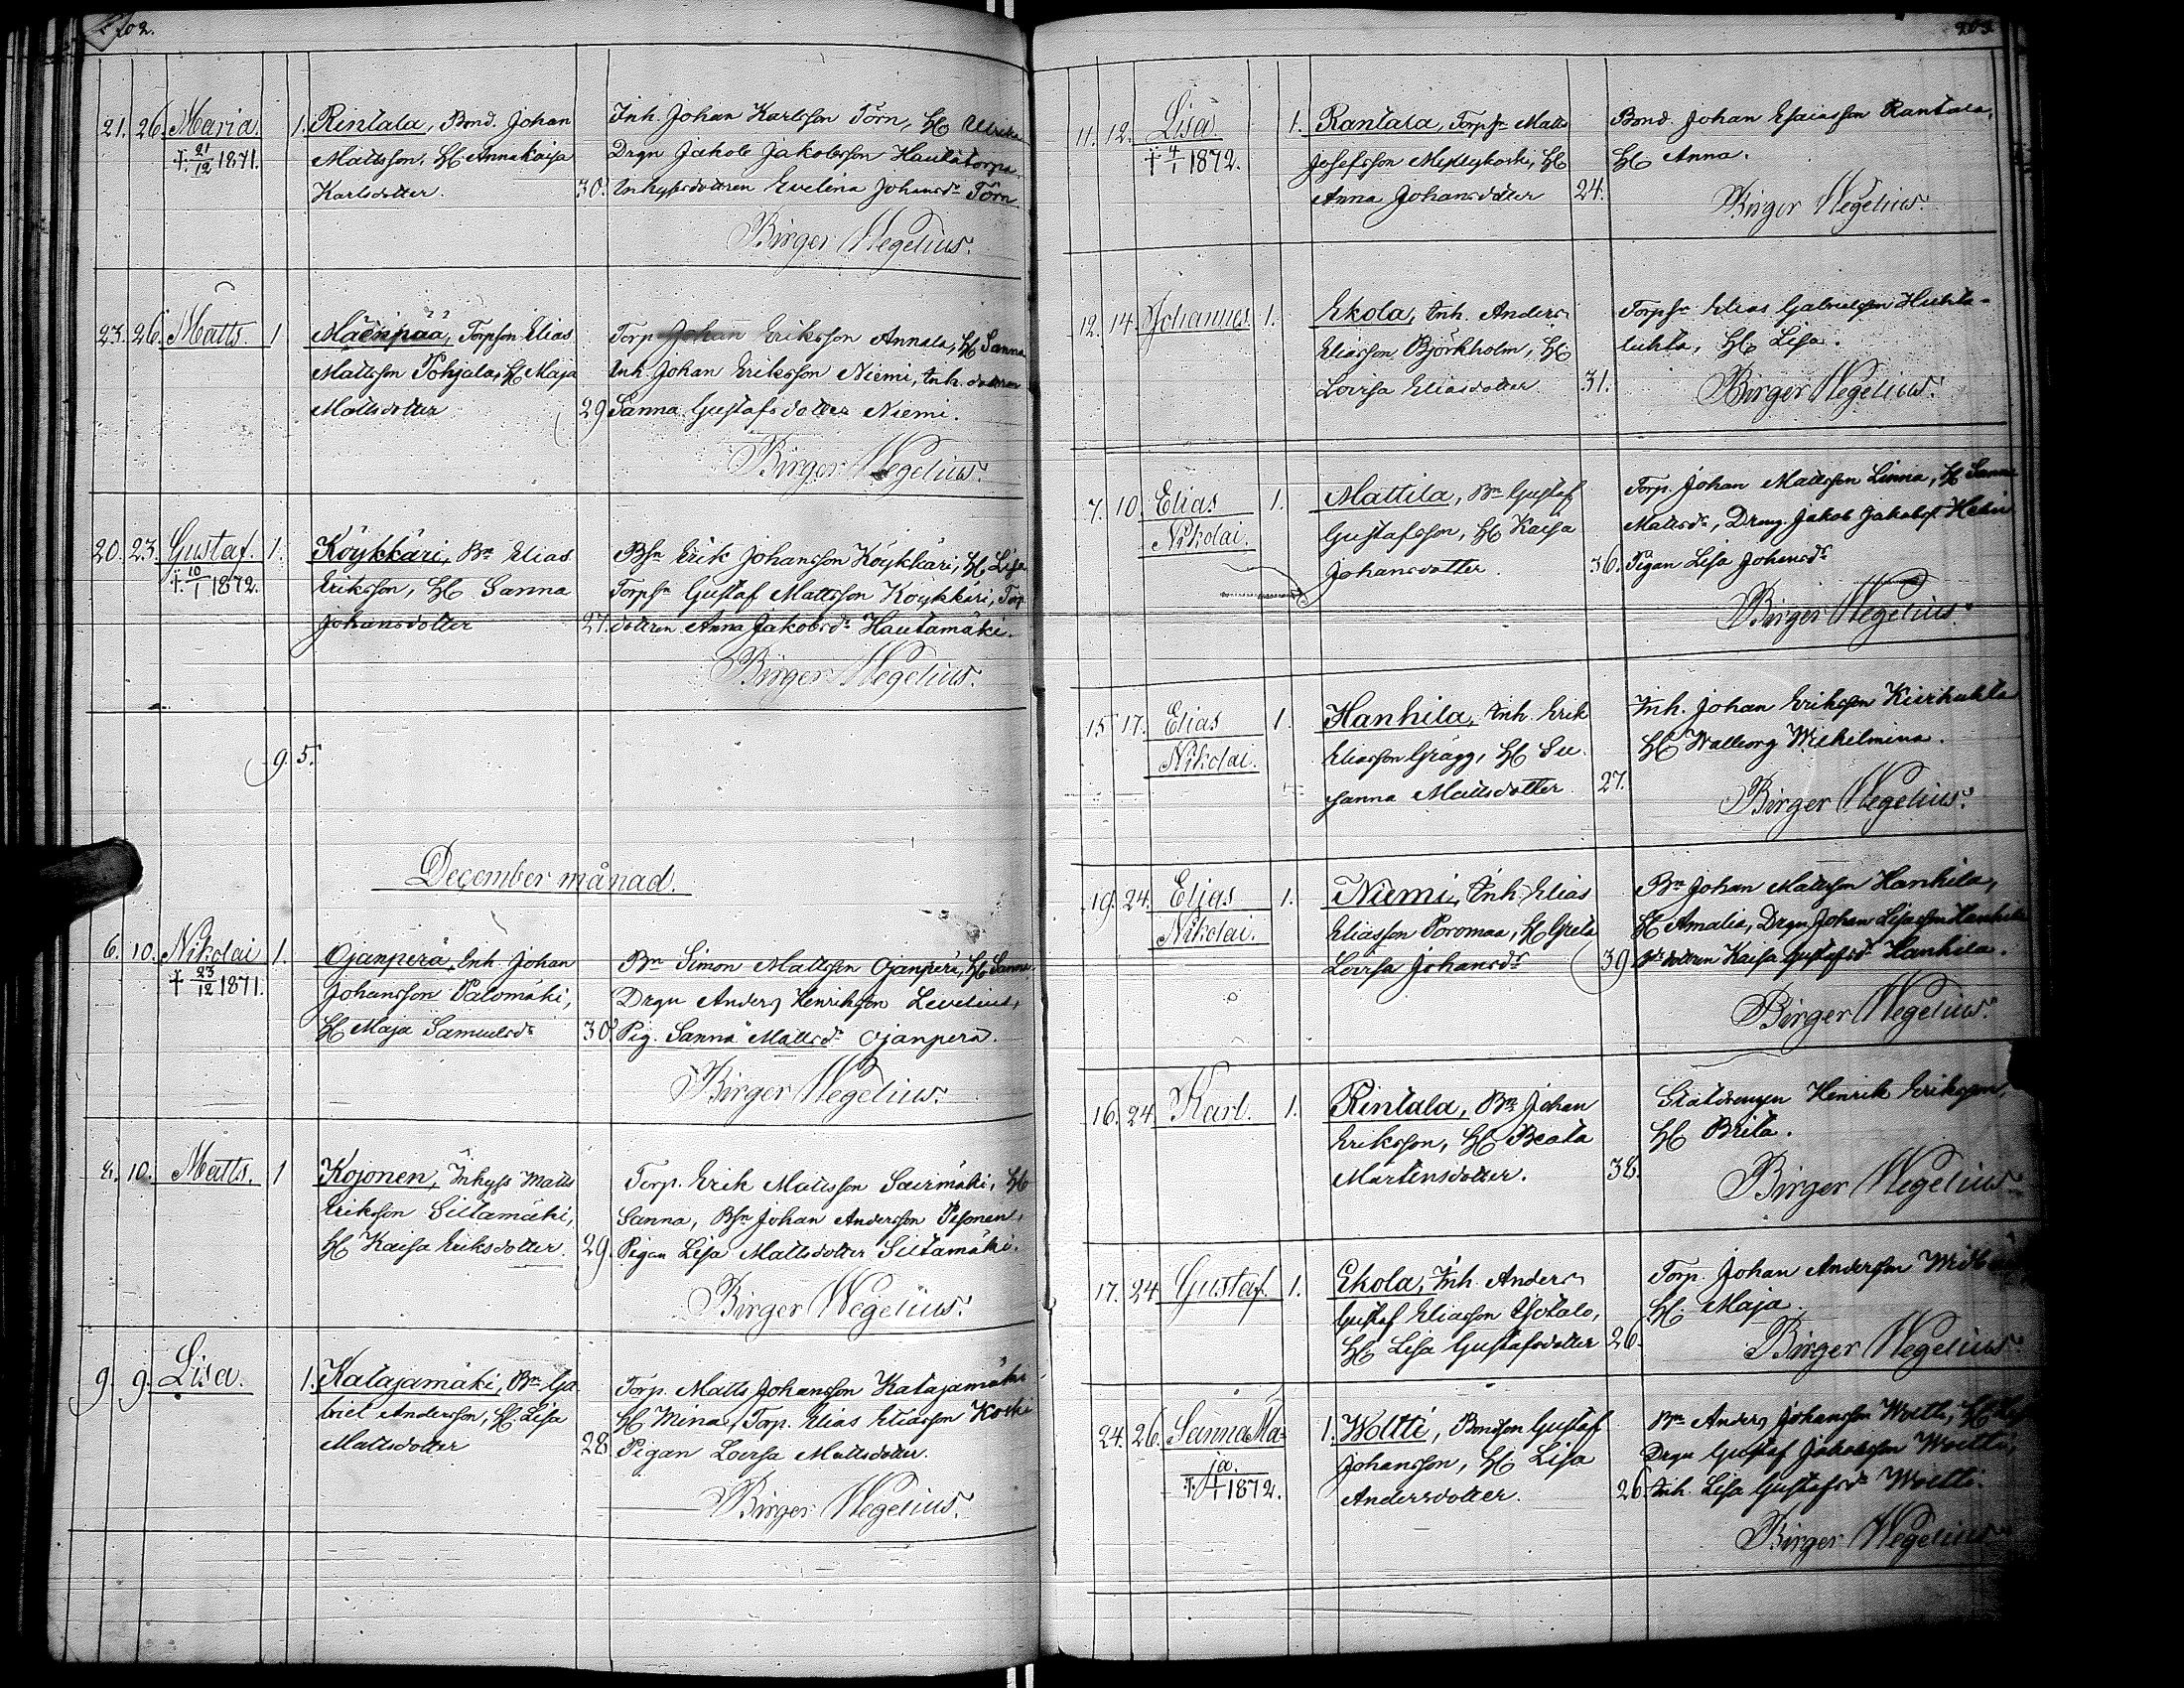 202.
21. 26. Maria. 1. Rintala, Bond. Johan Inh. Johan Karlsson Törn, H Ulrika
† 21/12 1871. Mattsson, H Annakaisa Drgn Jakob Jakobsson Hautatorpa
Karlsdotter. 30. Inhysesdottren Evelina Johansdr Törn
Birger Wegelius.
23. 26. Matts. 1 Mäenpää, Torpson Elias Torp Johan Eriksson Annala, H Sanna
Mattsson Pohjala, H Maja Inh. Johan Eriksson Niemi, Inh. dottren
Mattsdotter 29 Sanna Gustafsdotter Niemi.
Birger Wegelius.
20. 23. Gustaf. 1. Köykkäri, Bn Elias Bsn Erik Johansson Köykkäri, H Lisa
† 10/1 1872. Eriksson, H Sanna Torpsn Gustaf Mattsson Köykkäri, Torp
Johansdotter 27. dottren Anna Jakobsdr Hautamäki.
Birger Wegelius.
9 5.
December månad.
6. 10. Nikolai 1. Ojanperä, Inh. Johan Bn Simon Mattsson Ojanperä, H Sanna
† 23/12 1871. Johansson Palomäki, Drgn Anders Henriksson Levelius,
H Maja Samuelsdr 30. Pig. Sanna Mattsdr Ojanperä.
Birger Wegelius.
8. 10. Matts. 1 Kojonen, Inhys Matts Torp. Erik Mattsson Saarimäki, H
Eriksson Siltamäki, Sanna, Bsn Johan Andersson Pesonen,
H Kaisa Eriksdotter. 29. Pigan Lisa Mattsdotter Siltamäki.
Birger Wegelius.
9 9. Lisa. 1. Katajamäki, Bn Ga- Torp. Matts Johansson Katajamäki
briel Andersson, H Lisa H Mina, Torp. Elias Eliasson Koski
Mattsdotter 28 Pigan Lovisa Mattsdotter.
Birger Wegelius.
203.
11. 12. Lisa. 1. Rantala, Torpsn Matts Bond. Johan Esaiasson Rantala,
† 4/1 1872. Josefsson Myllykoski, H H Anna.
Anna Johansdotter 24. Birger Wegelius.
12. 14. Johannes. 1. Ekola, Inh. Anders Torpsn Elias Gabrielsson Huhta-
Eliasson Björkholm, H luhta, H Lisa.
Lovisa Eliasdotter 31. Birger Wegelius.
7. 10. Elias 1. Mattila, Bn Gustaf Torp. Johan Mattsson Linna, H Sanna
Nikolai. Gustafsson, H Kaisa Mattsdr, Dreng. Jakob Jakobss.
Johansdotter. 36. Pigan Lisa Johansdr
Birger Wegelius.
15 17. Elias 1. Hanhila, Inh. Erik Inh. Johan Eriksson
Nikolai. Eliasson Grägg, H Su- H Walborg Wilhelmina.
sanna Mattsdotter. 27. Birger Wegelius.
19. 24. Elias 1. Niemi, Inh. Elias Bn Johan Mattsson Hanhila,
Nikolai. Eliasson Poromaa, H Greta H Amalia, Drgn Johan Hanhila
Lovisa Johansdr 39 dottren Kaisa Gustafsdr Hanhila.
Birger Wegelius.
16. 24. Karl. 1. Rintala, Bn Johan Statdrengen Henrik Eriksson,
Eriksson, H Beata H Brita.
Mårtensdotter. 38. Birger Wegelius
17. 24. Gustaf. 1. Ekola, Inh. Anders Torp. Johan Andersson
Gustaf Eliasson Isotalo, H. Maja.
H Lisa Gustafsdotter 26. Birger Wegelius.
24. 26. Sanna Ma- 1. Woltti, Bondson Gustaf Bn Anders Johansson Woltti, H
ja. Johansson, H Lisa Drgn Gustaf Jakobsson Woltti,
† 1/1 1872. Andersdotter. 26. Inh. Lisa Gustafsdr Woltti.
Birger Wegelius